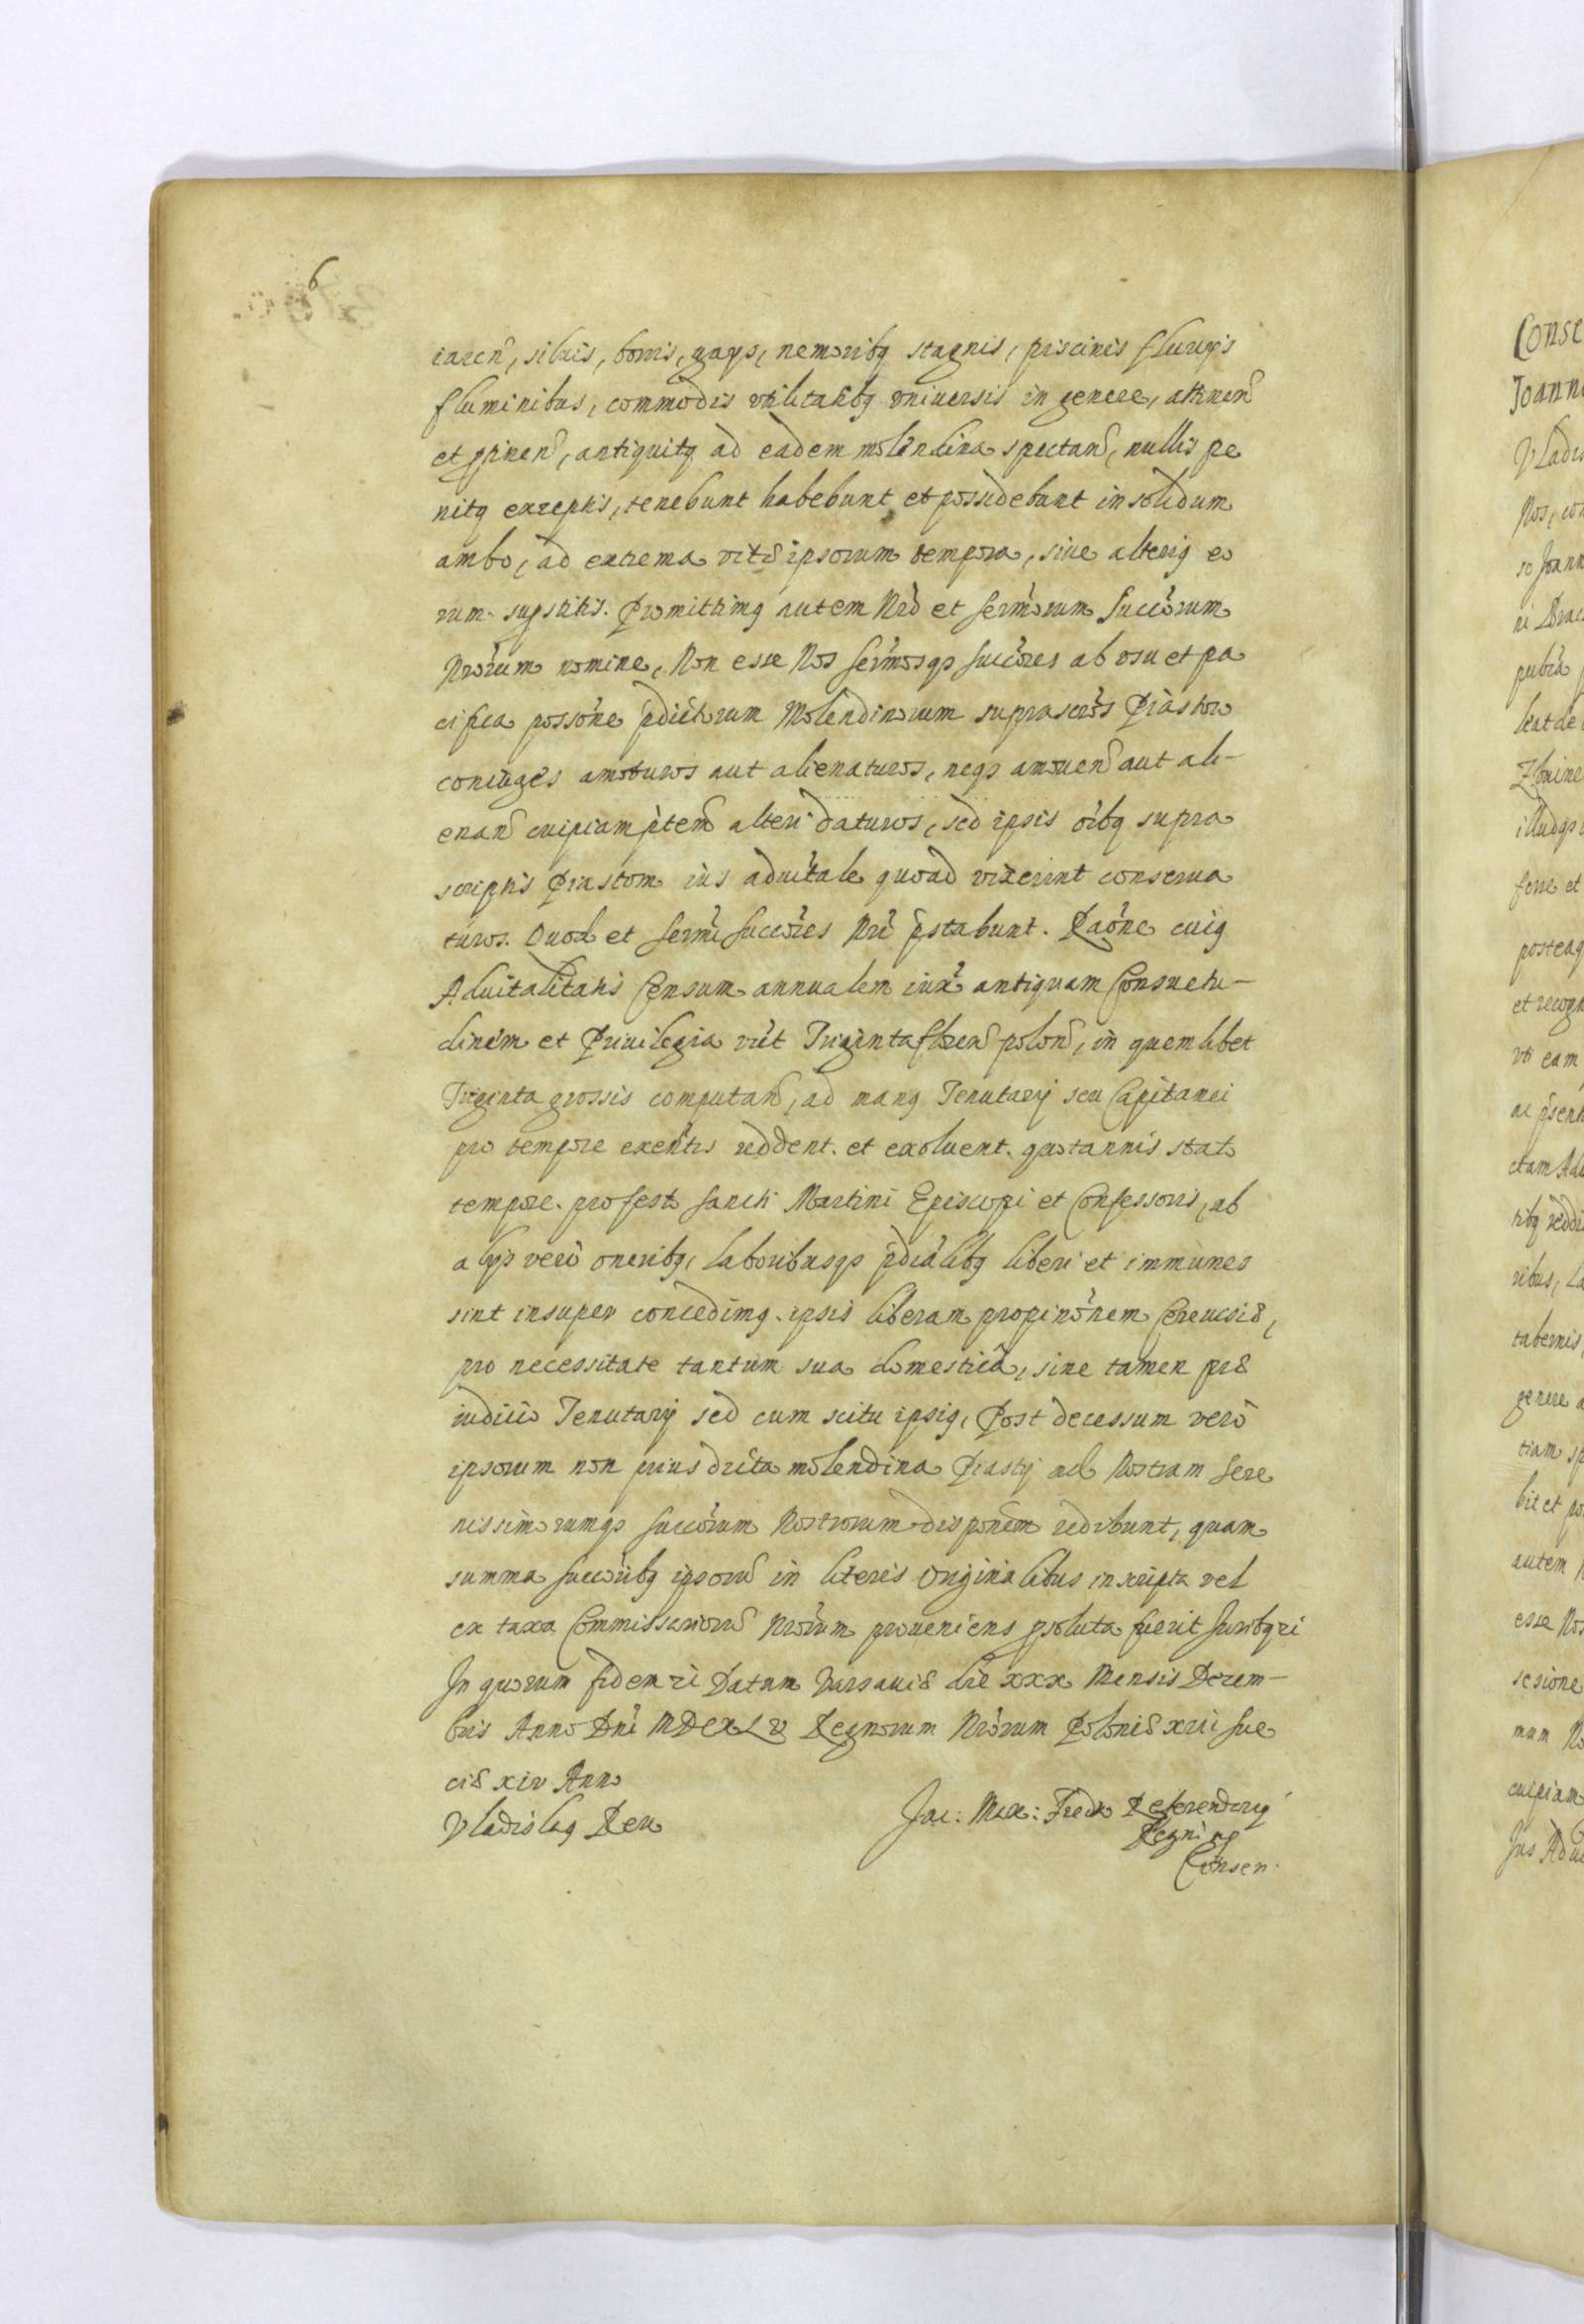 6
iacen, siluis, borris, gays, nemoribq stagnis, piscinis fluuys
fluminibus, commodis vtilitatibq vniuersis in genere, attinen
et ptinen, antiquitq ad eadem molendina spectan, nullis pe
nitq exceptis, tenebunt habebunt et possidebunt in solidum
ambo, ad extrema vitæ ipsorum tempora, siue alteriq eo
rum supstitis. Promittimq autem Nro et sermorum succorum
Nrorum nomine, Non esse Nos sermosqs succores ab vsu et pa
cifica possone pdictorum Molendinorum suprascros Piastow
coniuges amoturos aut alienaturos, neqs amouen aut ali-
enan cuipiam ptem alteri daturos, sed ipsis oibq supra
scriptis Piastom ius aduitale quoad vixerint conserua
turos. Quod et sermi succores Nri pstabunt. Raone cuiq
Aduitalitatis Censum annualem iux antiquam Consuetu-
dinem et Priuilegia vut Triginta floren polon, in quemlibet
Triginta grossis computan, ad manq Tenutarij seu Capitanei
pro tempore exentis reddent et exoluent quotannis stato
tempore pro festo Sancti Martini Episcopi et Confessoris, ab
alys vero oneribq, laboribusqs pdialibq liberi et immunes
sint insuper concedimq ipsis liberam propinonem Cereuisiæ,
pro necessitate tantum sua domestica, sine tamen præ
iudicio Tenutarij sed cum scitu ipsiq, Post decessum vero
ipsorum non prius dicta molendina Piasty ad Nostram Sere
nissimorumqs succorum Nostrorum disponem redibunt, quam
summa succoribq ipsoru in literis originalibus inscripta vel
ex taxa Commissarioru Nrorum proueniens psoluta fuerit Iuribq ri
In quorum fidem ri Datum Varsauiæ die xxx Mensis Decem-
bris Anno Dni MDCXLV Regnorum Nrorum Poloniæ xiii Sue
ciæ xiv Anno
Vladislaq Rex
Jac: Max: Fredro Referendariq
Regni mp
Consen.